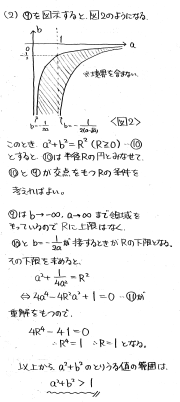 (2) ⑨を図示すると、図2のようになる。
b
1
a
O
※境界を含まない
b=-1/2a
<図2>
このとき a²+b²=R² (R≧0) …⑩
とすると、⑩は半径Rの円とみなせて、
⑩と⑨が交点をもつRの条件を
考えればよい。
⑨は b→-∞, a→∞ まで領域を
もっているので Rに上限はなく、
⑩と b=-1/2a が接するときが Rの下限となる。
その下限を求めると、
a²+1/4a²=R²
⇔ 4a⁴-4R²a²+1=0 …⑪が
重解をもつので、
4R⁴-4・1=0
∴R⁴=1 ∴R=1 となる。
以上から、a²+b²のとりうる値の範囲は、
a²+b²>1